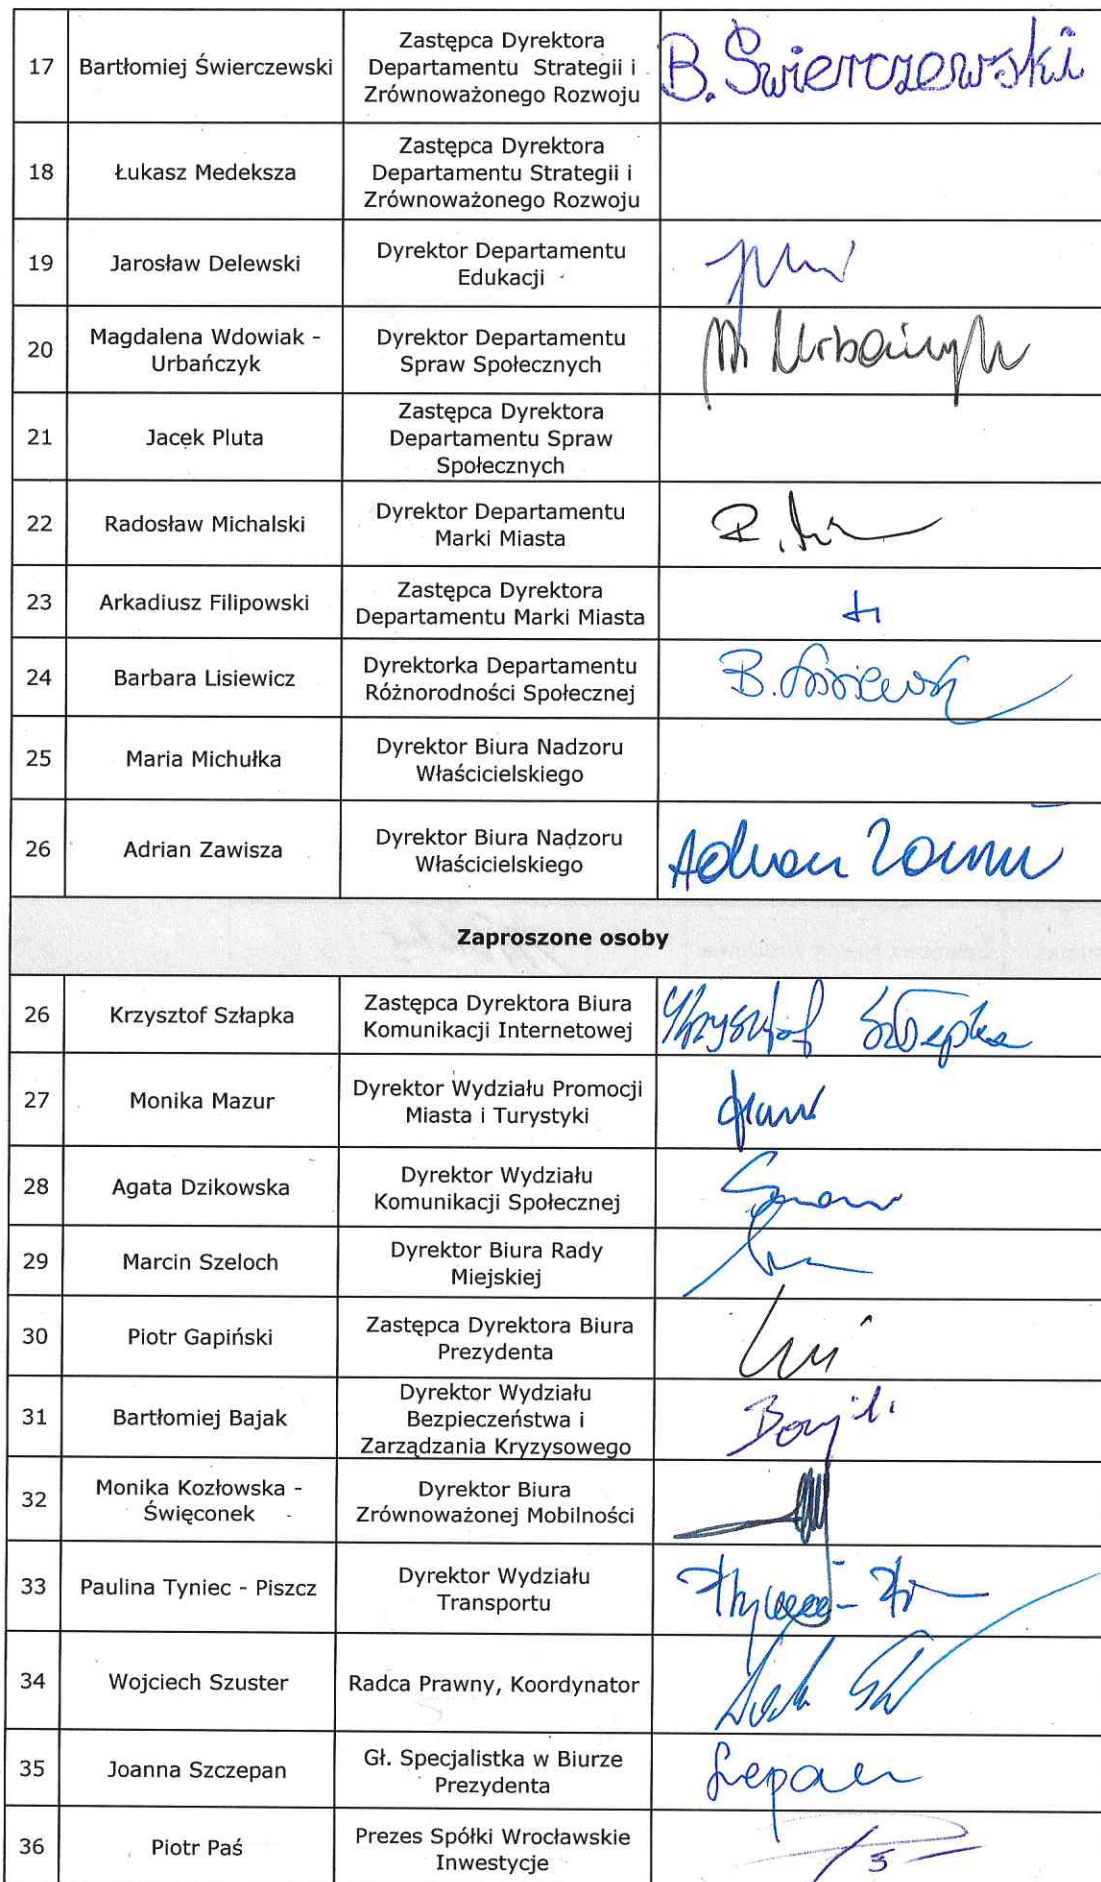 17 Bartłomiej Świerczewski Zastępca Dyrektora Departamentu Strategii i Zrównoważonego Rozwoju B. Świerczewski
18 Łukasz Medeksza Zastępca Dyrektora Departamentu Strategii i Zrównoważonego Rozwoju
19 Jarosław Delewski Dyrektor Departamentu Edukacji
20 Magdalena Wdowiak - Urbańczyk Dyrektor Departamentu Spraw Społecznych M Urbańczyk
21 Jacek Pluta Zastępca Dyrektora Departamentu Spraw Społecznych
22 Radosław Michalski Dyrektor Departamentu Marki Miasta
23 Arkadiusz Filipowski Zastępca Dyrektora Departamentu Marki Miasta
24 Barbara Lisiewicz Dyrektorka Departamentu Różnorodności Społecznej B. Lisiewicz
25 Maria Michułka Dyrektor Biura Nadzoru Właścicielskiego
26 Adrian Zawisza Dyrektor Biura Nadzoru Właścicielskiego Adrian Zawisza
Zaproszone osoby
26 Krzysztof Szłapka Zastępca Dyrektora Biura Komunikacji Internetowej Krzysztof Szłapka
27 Monika Mazur Dyrektor Wydziału Promocji Miasta i Turystyki
28 Agata Dzikowska Dyrektor Wydziału Komunikacji Społecznej
29 Marcin Szeloch Dyrektor Biura Rady Miejskiej
30 Piotr Gapiński Zastępca Dyrektora Biura Prezydenta
31 Bartłomiej Bajak Dyrektor Wydziału Bezpieczeństwa i Zarządzania Kryzysowego
32 Monika Kozłowska - Święconek Dyrektor Biura Zrównoważonej Mobilności
33 Paulina Tyniec - Piszcz Dyrektor Wydziału Transportu
34 Wojciech Szuster Radca Prawny, Koordynator
35 Joanna Szczepan Gł. Specjalistka w Biurze Prezydenta
36 Piotr Paś Prezes Spółki Wrocławskie Inwestycje